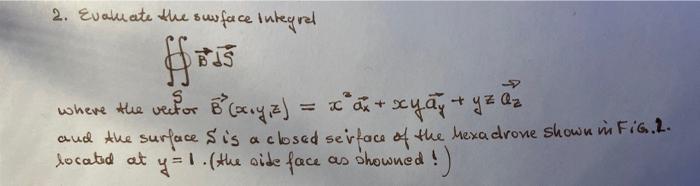 2. Evaluate the surface Integral
∯ B⃗ dS⃗
S
where the vector B⃗ (x,y,z) = x² a⃗x + xy a⃗y + yz a⃗z
and the surface S is a closed serface of the hexadrone shown in FiG.2.
located at y = 1 . (the side face as showned !)